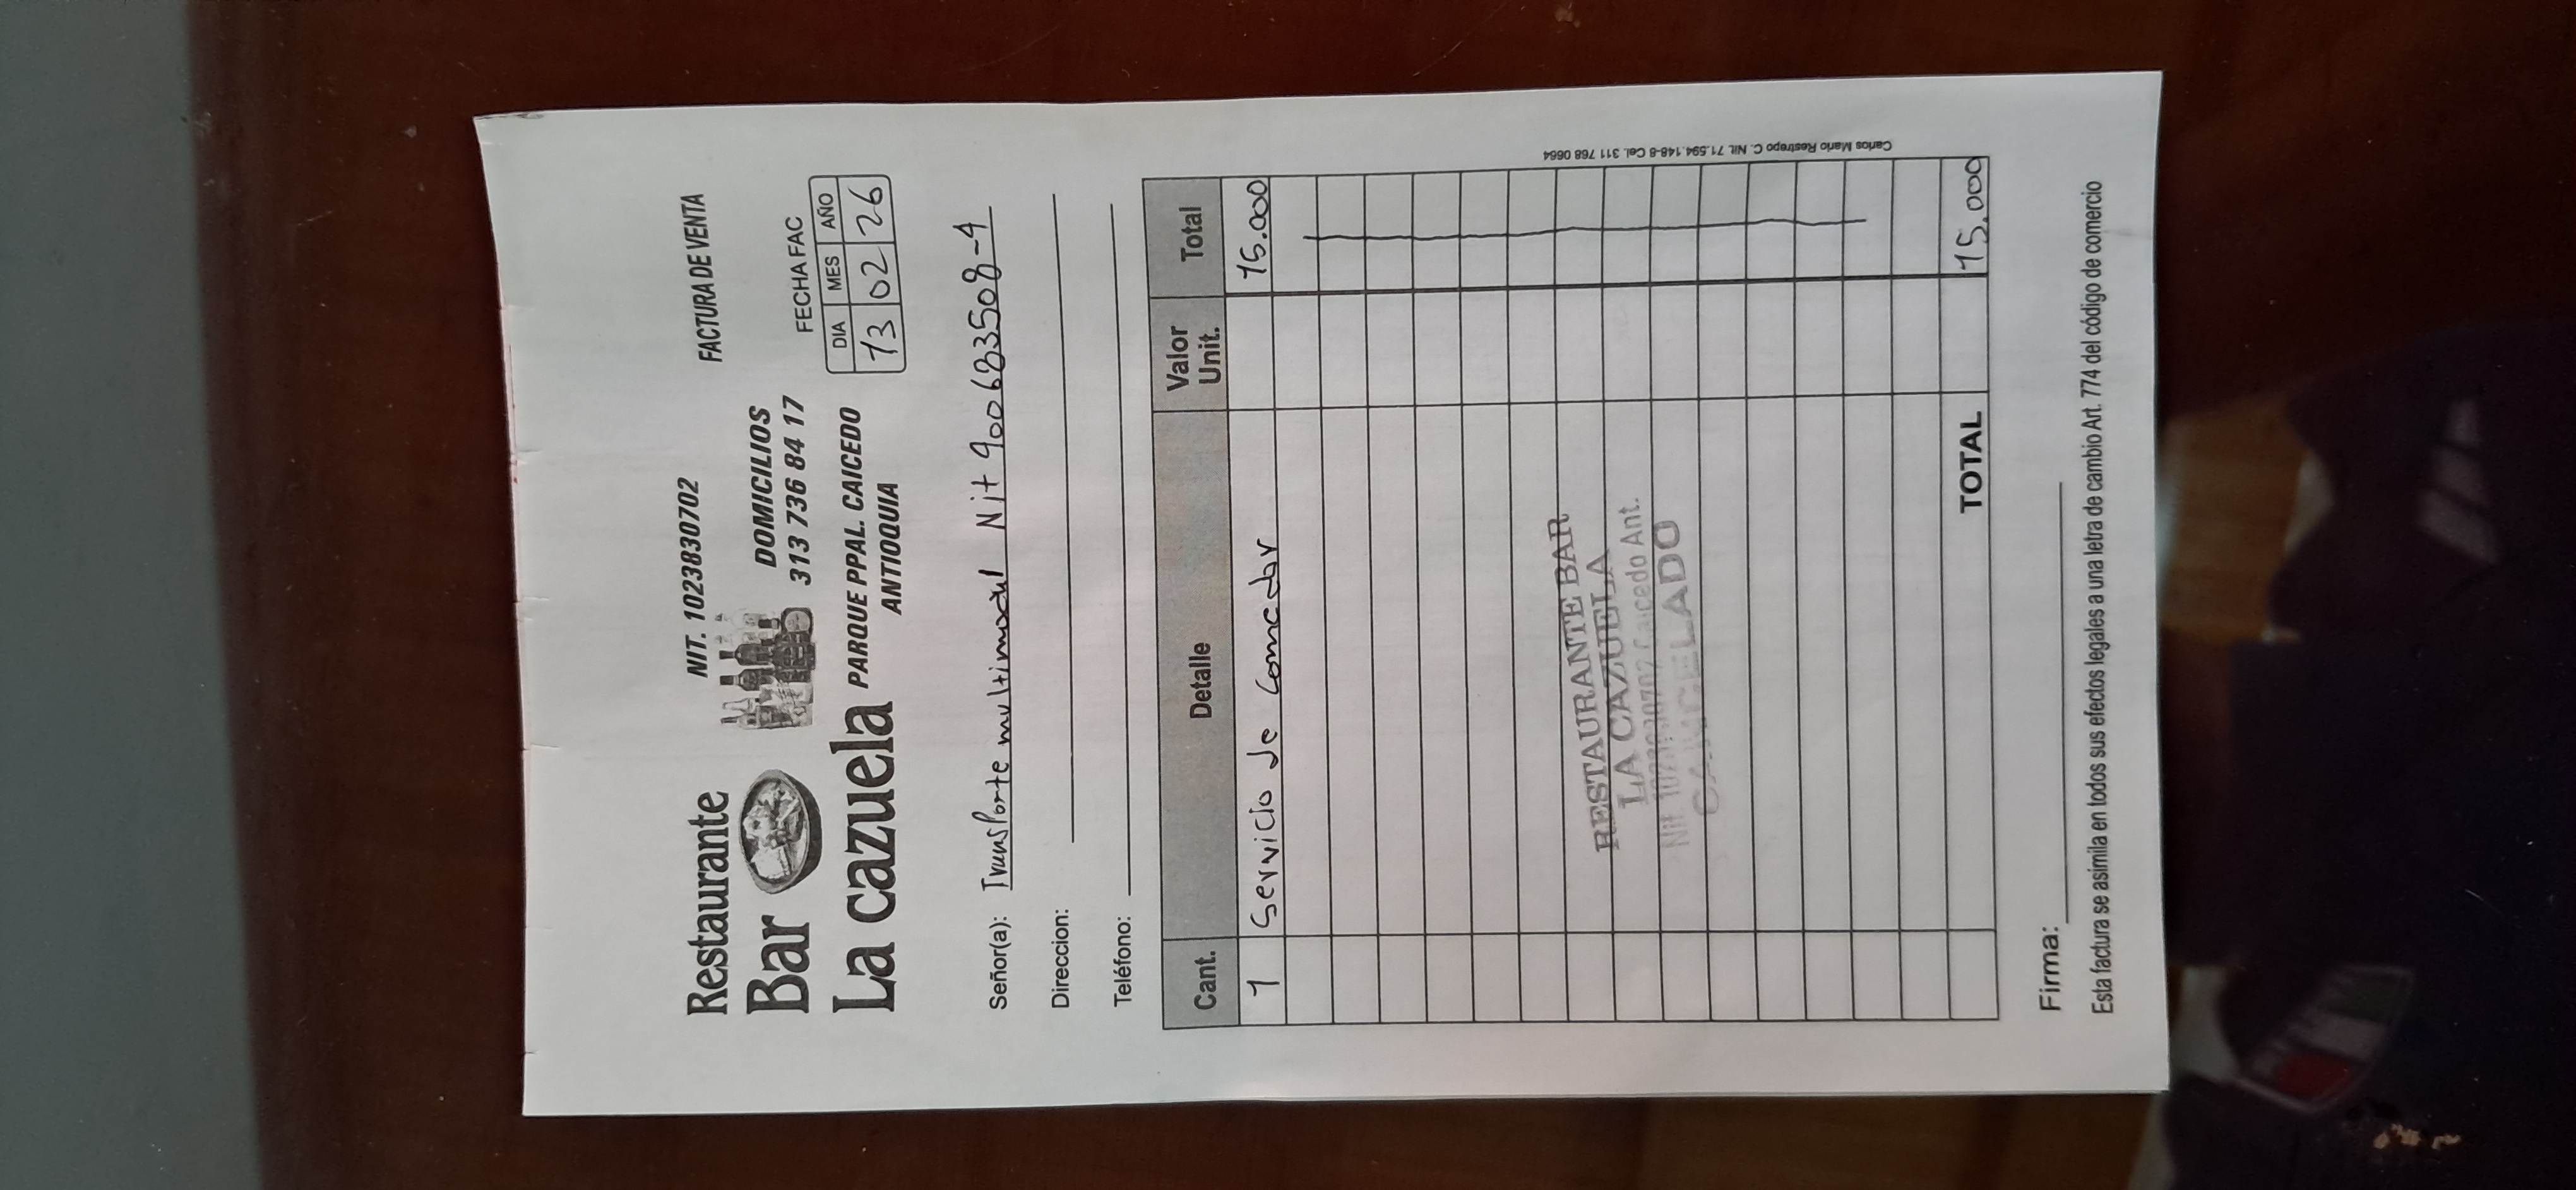 Restaurante NIT. 1023830702 FACTURA DE VENTA
Bar DOMICILIOS
313 736 84 17
La cazuela PARQUE PPAL. CAICEDO
ANTIOQUIA
FECHA FAC
DIA MES AÑO
13 02 26
Señor(a): Transporte multimodal Nit 900683508-4
Direccion:
Teléfono:
Cant. Detalle Valor Unit. Total
1 Servicio de Comedor 15.000
RESTAURANTE BAR
LA CAZUELA
Nit. 1023830702 Caicedo Ant.
CANCELADO
TOTAL 15.000
Carlos Mario Restrepo C. Nit. 71.594.148-8 Cel. 311 768 0664
Firma:
Esta factura se asimila en todos sus efectos legales a una letra de cambio Art. 774 del código de comercio